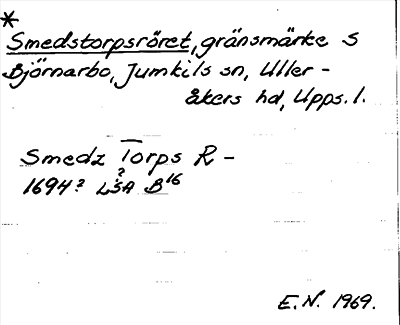 *
Smedstorpsröret, gränsmärke S
Björnarbo, Jumkils sn, Uller-
åkers hd, Upps. l.
Smedz Torps R -
1694? LSA B16
?
E.N. 1969.